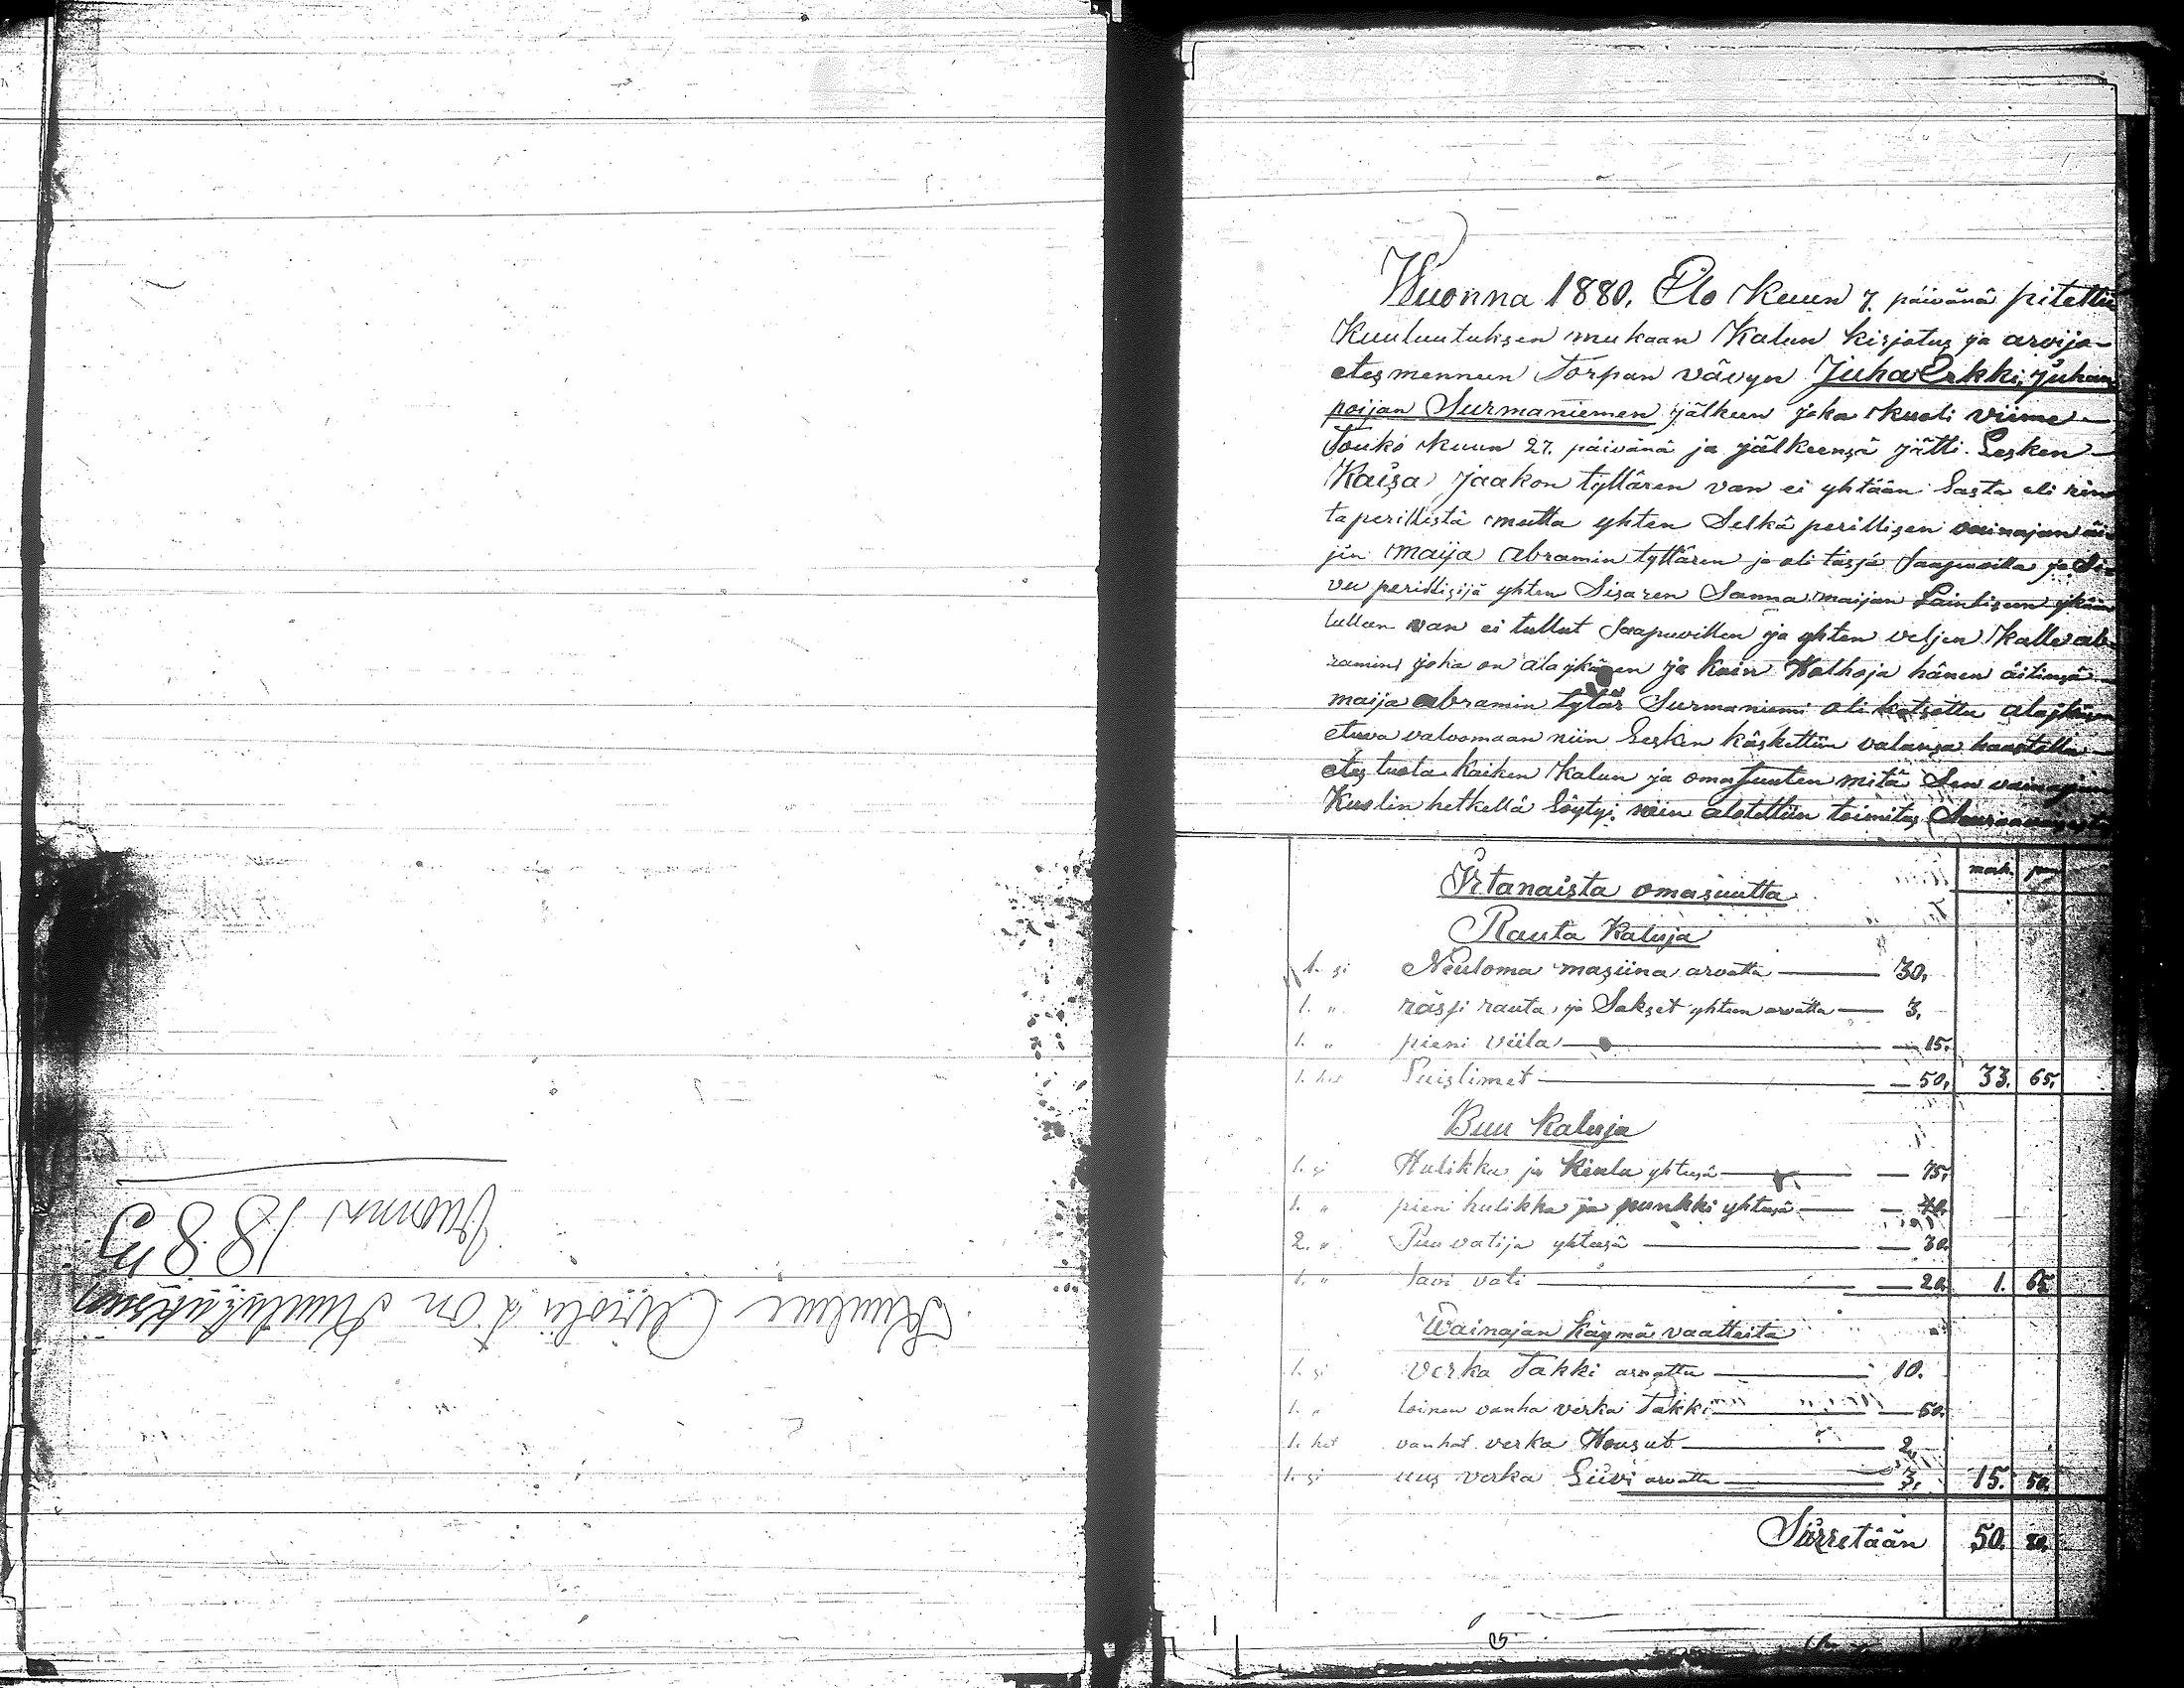 Vuonna 1883
Wuonna 1880. Elo Kuun 7. päivänä pitettiin
Kuuluutuksen mukaan Kalun kirjotus ja arvijo
etesmennun Torpan vävyn Juha Erkki, Juhan
poijan Surmaniemen jälkeen joka kuoli viime
Touko kuun 27. päivänä ja jälkeensä jätti Lesken
Kaisa Jaakon tyttären van ei yhtään Lasta eli rin
taperillistä mutta yhten Selkä perillisen vainajan äi
jin maija Abramin tyttären ja oli täsjä Saapuvilla ja Si
vu perillisijä yhten Sisaren Sanna maijan Lainliseen ikään
tulleen van ei tullut Saapuvillen ja yhten veljen Kalle ab
ramin joka on alaykäyen ja kuin Holhoja hänen äitinsä
maija abramin tytär Surmaniemi oli katsottu alaykäyen
etuva valvomaan niin Lesken käskettiin valansa haastella
etes tuota kaiken Kalun ja omasuuten mitä Sen vainajan
Kuolin hetkellä Löytyi, niin alotettiin toimitus
mark. pen
Irtanaista omasuutta
Rauta Kaluja
1. si Neuloma masiina arvattu 30,
1. " rässi rauta, ja Sakset yhteen arvattu 3,
1. " pieni viila 15.
1. het Puislimet 50, 33. 65,
Buu Kaluja
1. si Hulikka ja Kiulu yhtesä 75,
1. " pieni hulikka ja punkki yhtesä 40.
2. " Puu vatija yhtesä 30.
1. " Savi vati 20. 1. 65
Wainajan käymä vaatteita
1. si Verka Takki arvattu 10.
1. " toinen vanha verka Takki 50.
1. het vanhat verka Housut 2,
1. si uus verka Liivi arvattu 3, 15. 50,
Siirretään 50. 80.